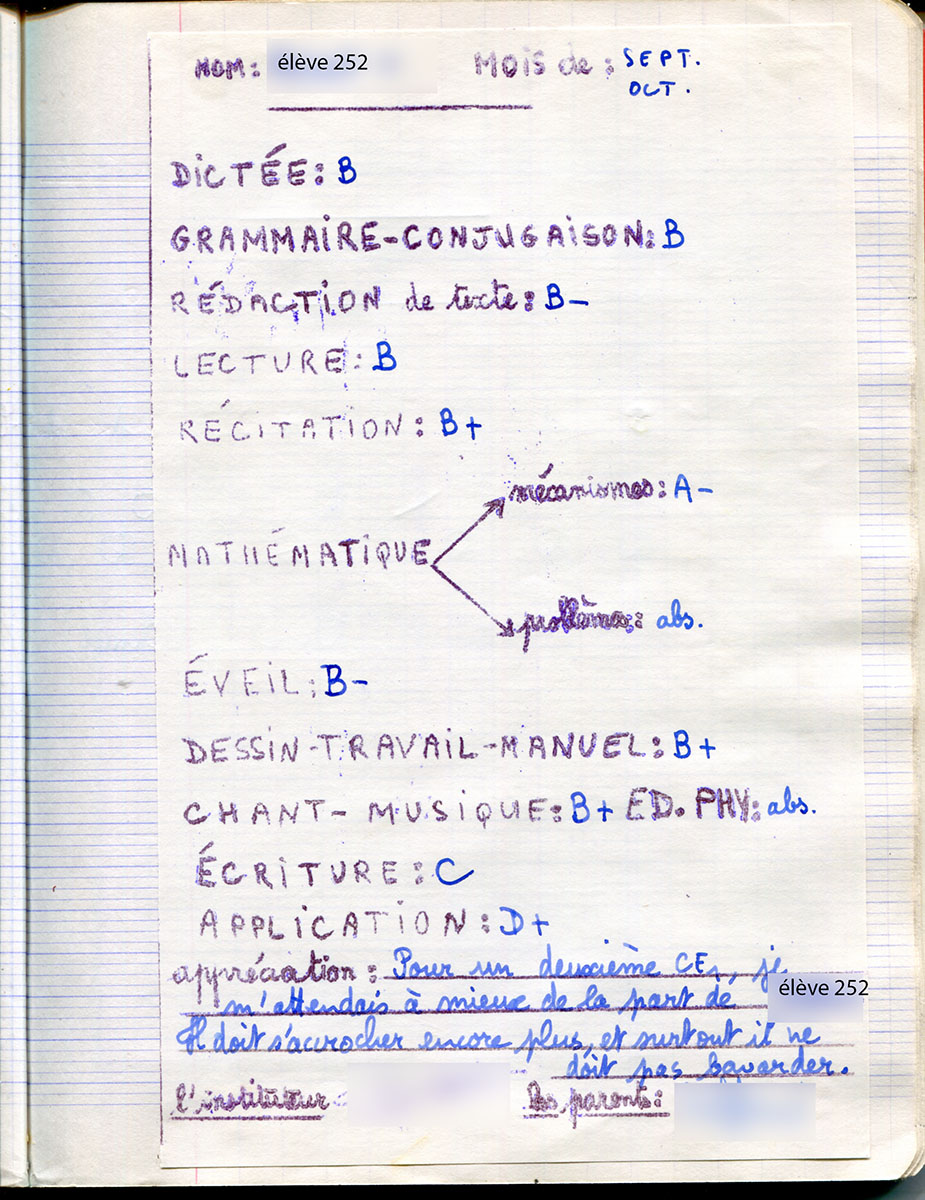 NOM: élève 252 MOIS de : SEPT.
OCT.
DICTÉE: B
GRAMMAIRE-CONJUGAISON: B
RÉDACTION de texte: B-
LECTURE: B
RÉCITATION: B+
mécanismes: A-
MATHÉMATIQUE
problèmes: abs.
ÉVEIL: B-
DESSIN-TRAVAIL-MANUEL: B+
CHANT-MUSIQUE: B+ ED. PHY: abs.
ÉCRITURE: C
APPLICATION: D+
appréciation: Pour un deuxième CE1, je
m'attendais à mieux de la part de élève 252
Il doit s'accrocher encore plus, et surtout il ne
doit pas bavarder.
l'instituteur Les parents: